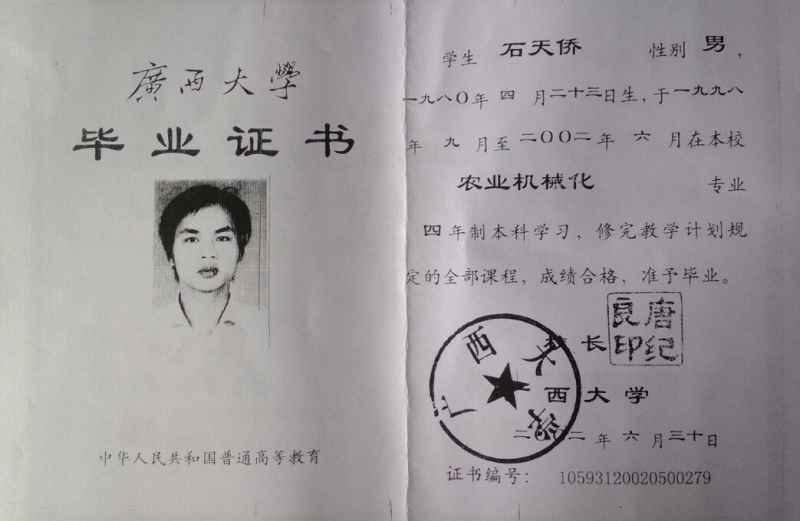 廣西大學
毕业证书
中华人民共和国普通高等教育
学生 石天侨 性别 男，
一九八〇年 四 月二十三日生，于一九九八
年 九 月至二〇〇二年 六 月在本校
农业机械化 专业
四年制本科学习，修完教学计划规
定的全部课程，成绩合格，准予毕业。
校长
唐纪良印
广西大学
西大学
二〇〇二年 六 月三十日
证书编号： 105931200205000279